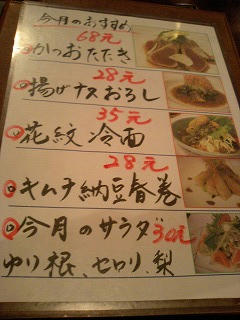 今月のおすすめ
68元
◎かつおたたき
28元
◎揚げナスおろし
35元
◎花紋冷面
28元
◎キムチ納豆春巻
◎今月のサラダ 30元
ゆり根、セロリ、梨